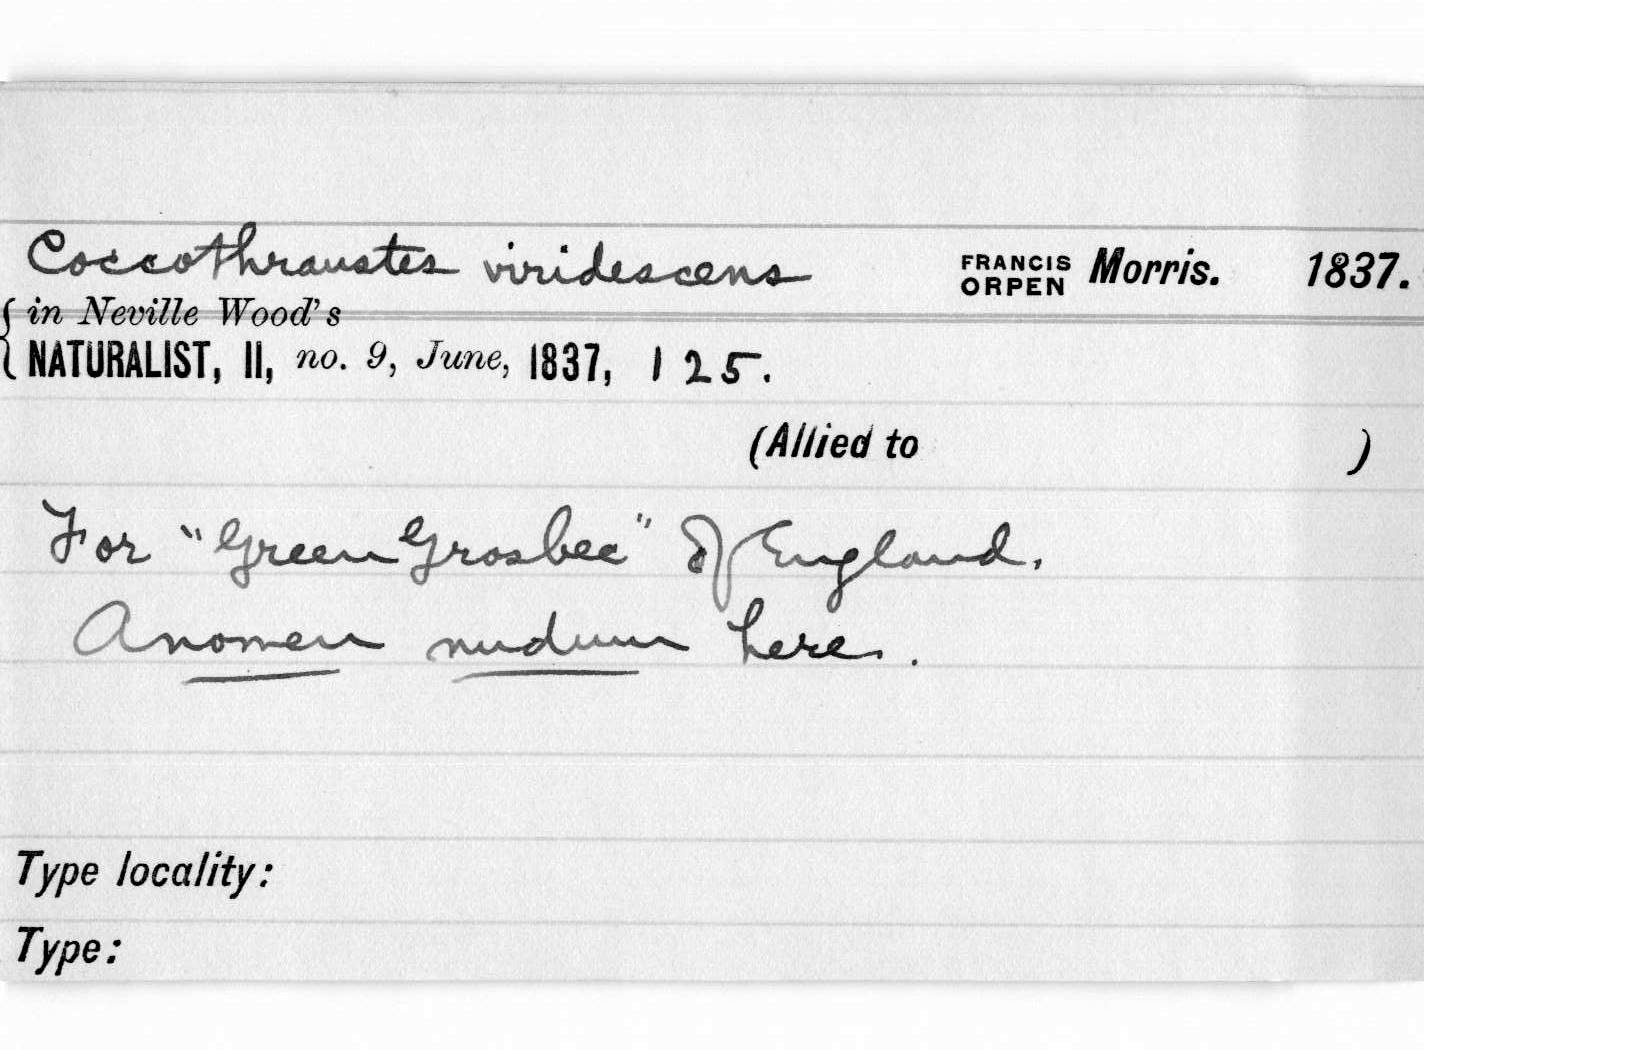 Coccothraustes viridescens FRANCIS ORPEN Morris. 1837.
{ in Neville Wood's
NATURALIST, II, no. 9, June, 1837, 125.
(Allied to )
For "Green Grosbec" of England.
A nomen nudum here.
Type locality:
Type: